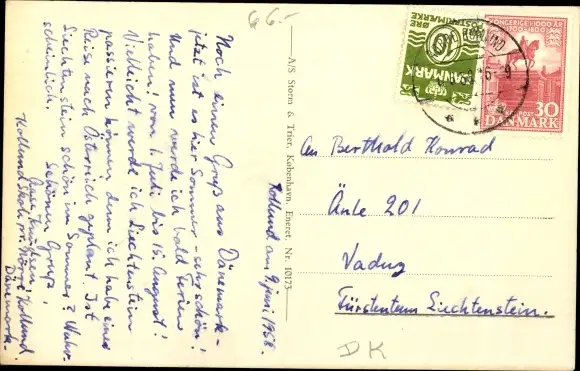 6 6.-
Noch einen Gruß aus Dänemark -
jetzt ist es hier Sommer - sehr schön!
Und nun werde ich bald Ferien
haben! vom 1. Juli bis 15. August!
Vielleicht werde ich Liechtenstein
passieren können, denn ich habe eine
Reise nach Österreich geplant. Ist
Liechtenstein schön im Sommer? Wahr-
scheinlich.
Schönen Gruß!
Kollund Skole pr. Nørre Kollund
Dänemark.
Kollund am 9 juni 1958.
A/S Storm & Trier, København. Eneret. Nr. 10173
ØRE
POSTFRIMÆRKE
10
DANMARK
KONGERIGE I 1000 ÅR
POST
30
DANMARK
An Berthold Konrad
Äule 201
Vaduz
Fürstentum Liechtenstein.
DK